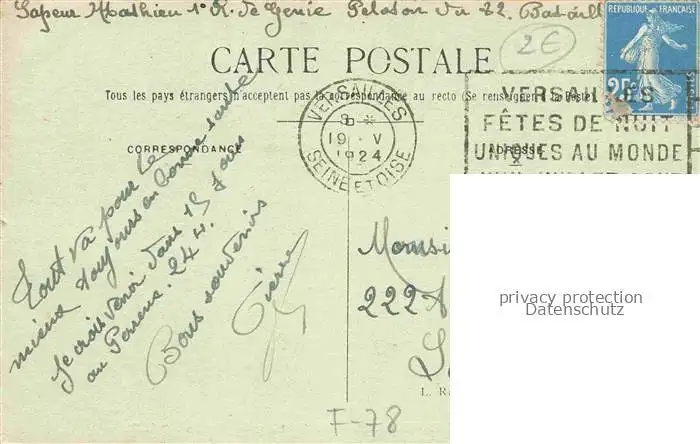 Sapeur Mathieu 1° R. de Génie Peloton du 22. Bataill
2€
RÉPUBLIQUE FRANÇAISE
25c
CARTE POSTALE
Tous les pays étrangers n'acceptent pas la correspondance au recto (Se renseigner à la Poste)
VERSAILLES
8 *
19 - V
1924
SEINE ET OISE
VERSAILLES
FÊTES DE NUIT
UNIQUES AU MONDE
CORRESPONDANCE
ADRESSE
Tout va pour le
mieux toujours en bonne santé
Je crois venir dans 15 jours
au Perreux. 24 H.
Bons souvenirs
Pierre
Monsi
222
L. R
F-78
privacy protection
Datenschutz